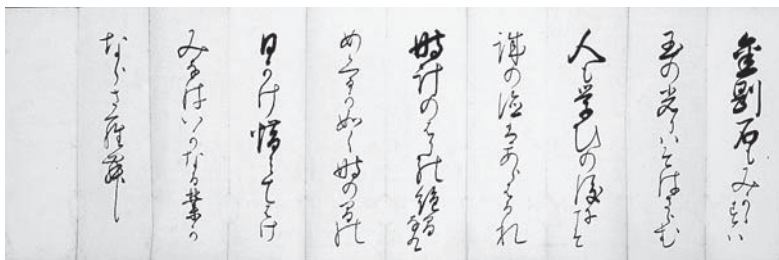 金剛石もみかゝすは
玉の光はそはさらむ
人も学ひの後にこそ
誠の徳はあらはるれ
時計のはりの絶間なく
めくるか如く時の間の
日かけ惜みてはけ
みなはいかなる業か
ならさらむ